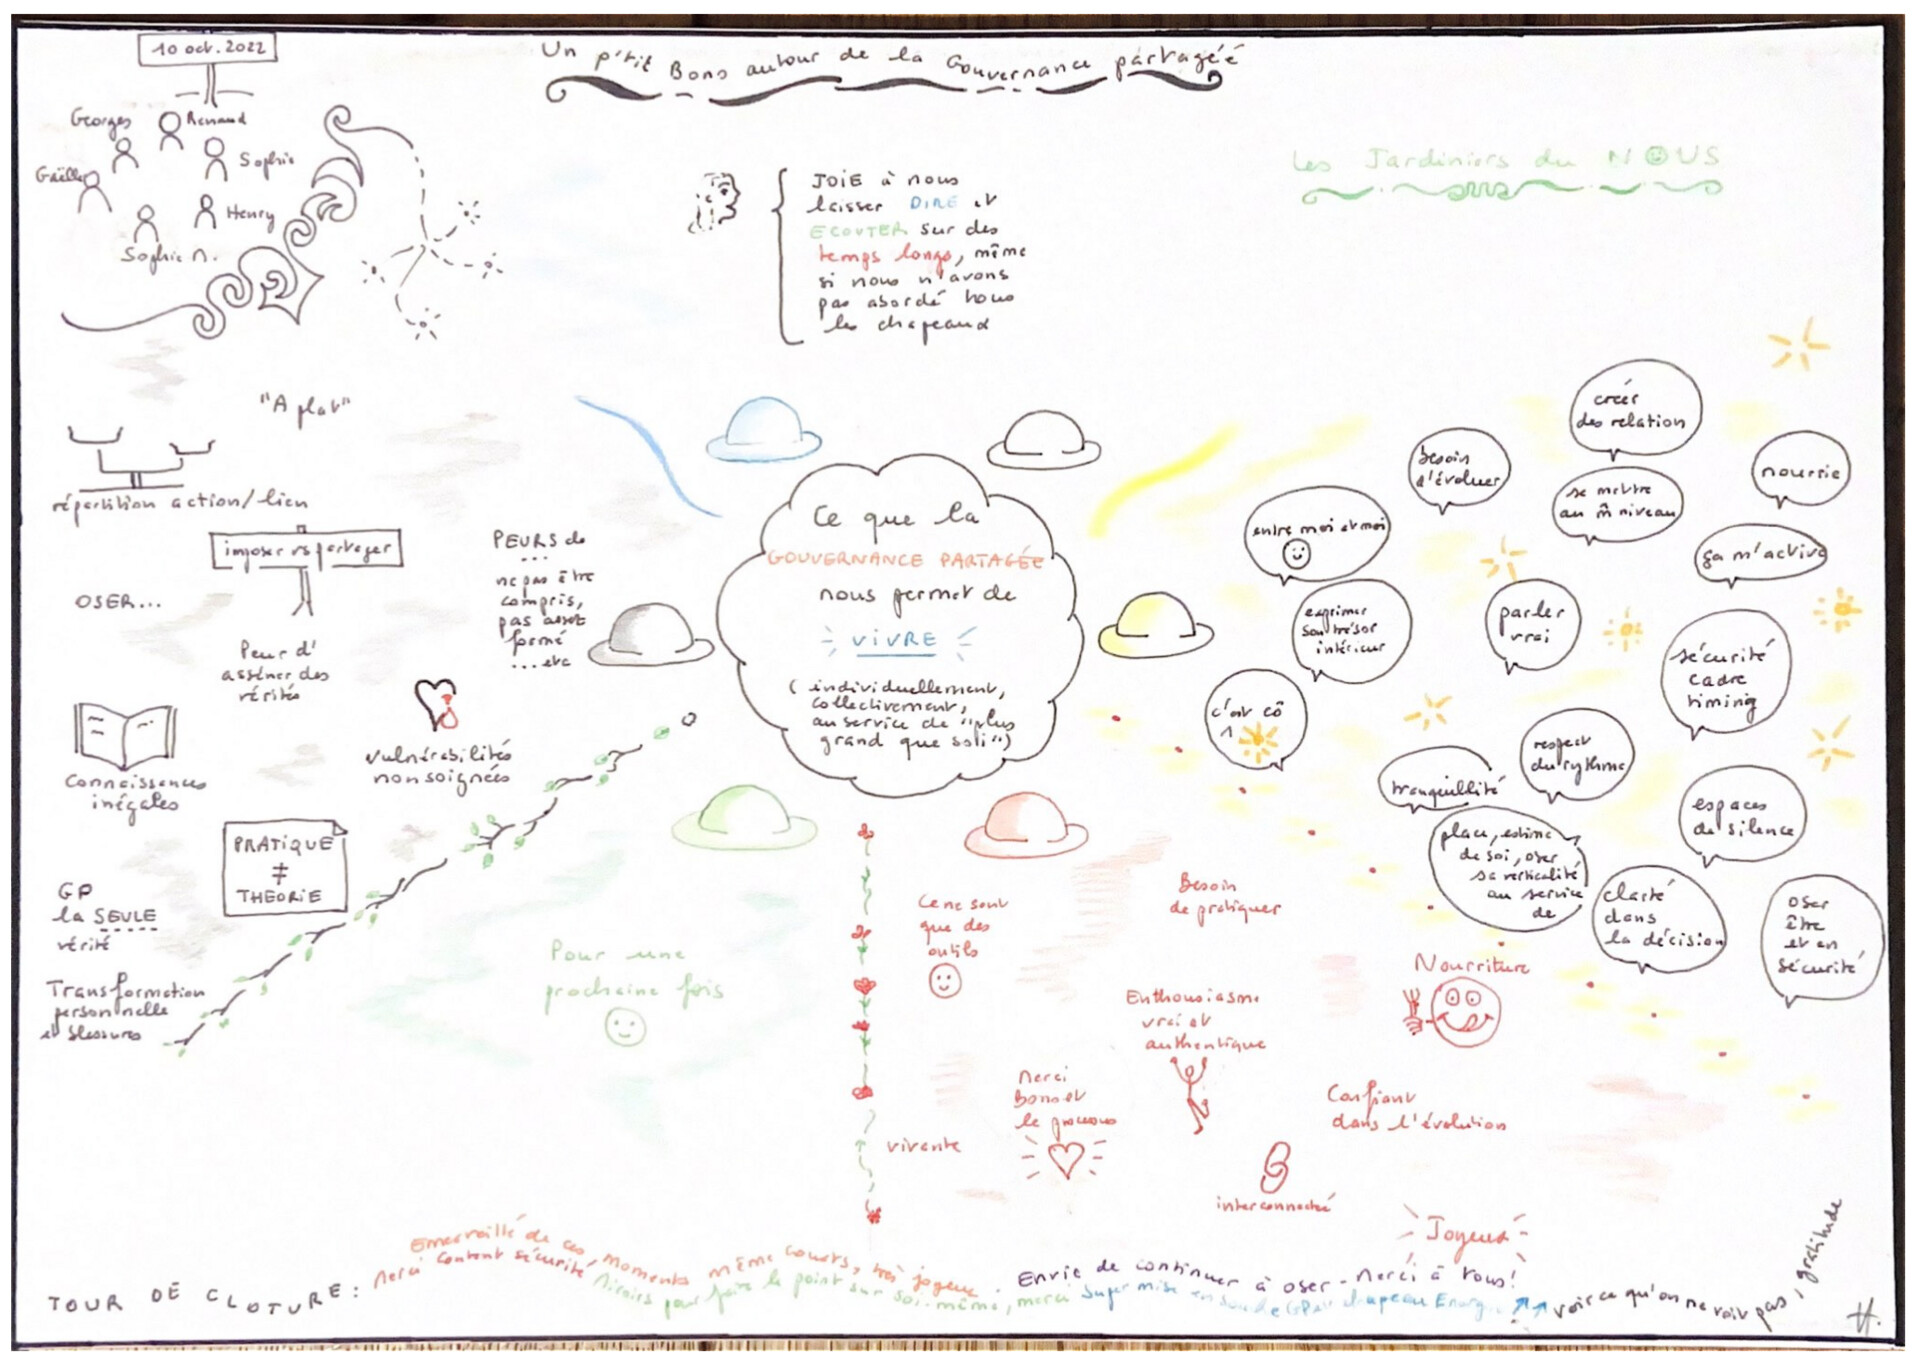 10 oct. 2022
Un p'tit Bono autour de la Gouvernance partagéé
Georges
Renaud
Gaëlle
Sophie
Henry
Sophie n.
Les Jardiniers du NOUS
JOIE à nous
laisser DIRE et
ECOUTER sur des
temps longs, même
si nous n'avons
pas abordé tous
les chapeaux
"A plat"
répartition action/lien
imposer vs partager
OSER...
Peur d'
asséner des
vérités
PEURS de
...
ne pas être
compris,
pas assez
formé
...etc
vulnérabilités
non soignées
Connaissances
inégales
PRATIQUE
≠
THEORIE
GP
la SEULE
vérité
Transformation
personnelle
et blessures
Ce que la
GOUVERNANCE PARTAGÉE
nous permet de
VIVRE
(individuellement,
collectivement,
au service de "plus
grand que soi")
créer
des relation
besoin
d'évoluer
nourrie
se mettre
au m̂ niveau
entre moi et moi
ça m'active
exprimer
son trésor
intérieur
parler
vrai
sécurité
cadre
timing
c'est cô
1
respect
du rythme
tranquillité
espaces
de silence
place, estime
de soi, oser
sa verticalité
au service
de
clarté
dans
la décision
oser
être
et en
sécurité
Pour une
prochaine fois
Ce ne sont
que des
outils
Besoin
de pratiquer
Nourriture
Enthousiasme
vrai et
authentique
Merci
Bono et
le processus
Confiant
dans l'évolution
vivante
interconnecté
Joyeux
TOUR DE CLOTURE :
Emerveillé de ces moments même courts, très joyeux.
Merci content sécurité
Miroirs pour faire le point sur soi-même, merci
Envie de continuer à oser - Merci à tous!
Super mise en son de GP chapeau Energie
voir ce qu'on ne voit pas, gratitude
H.